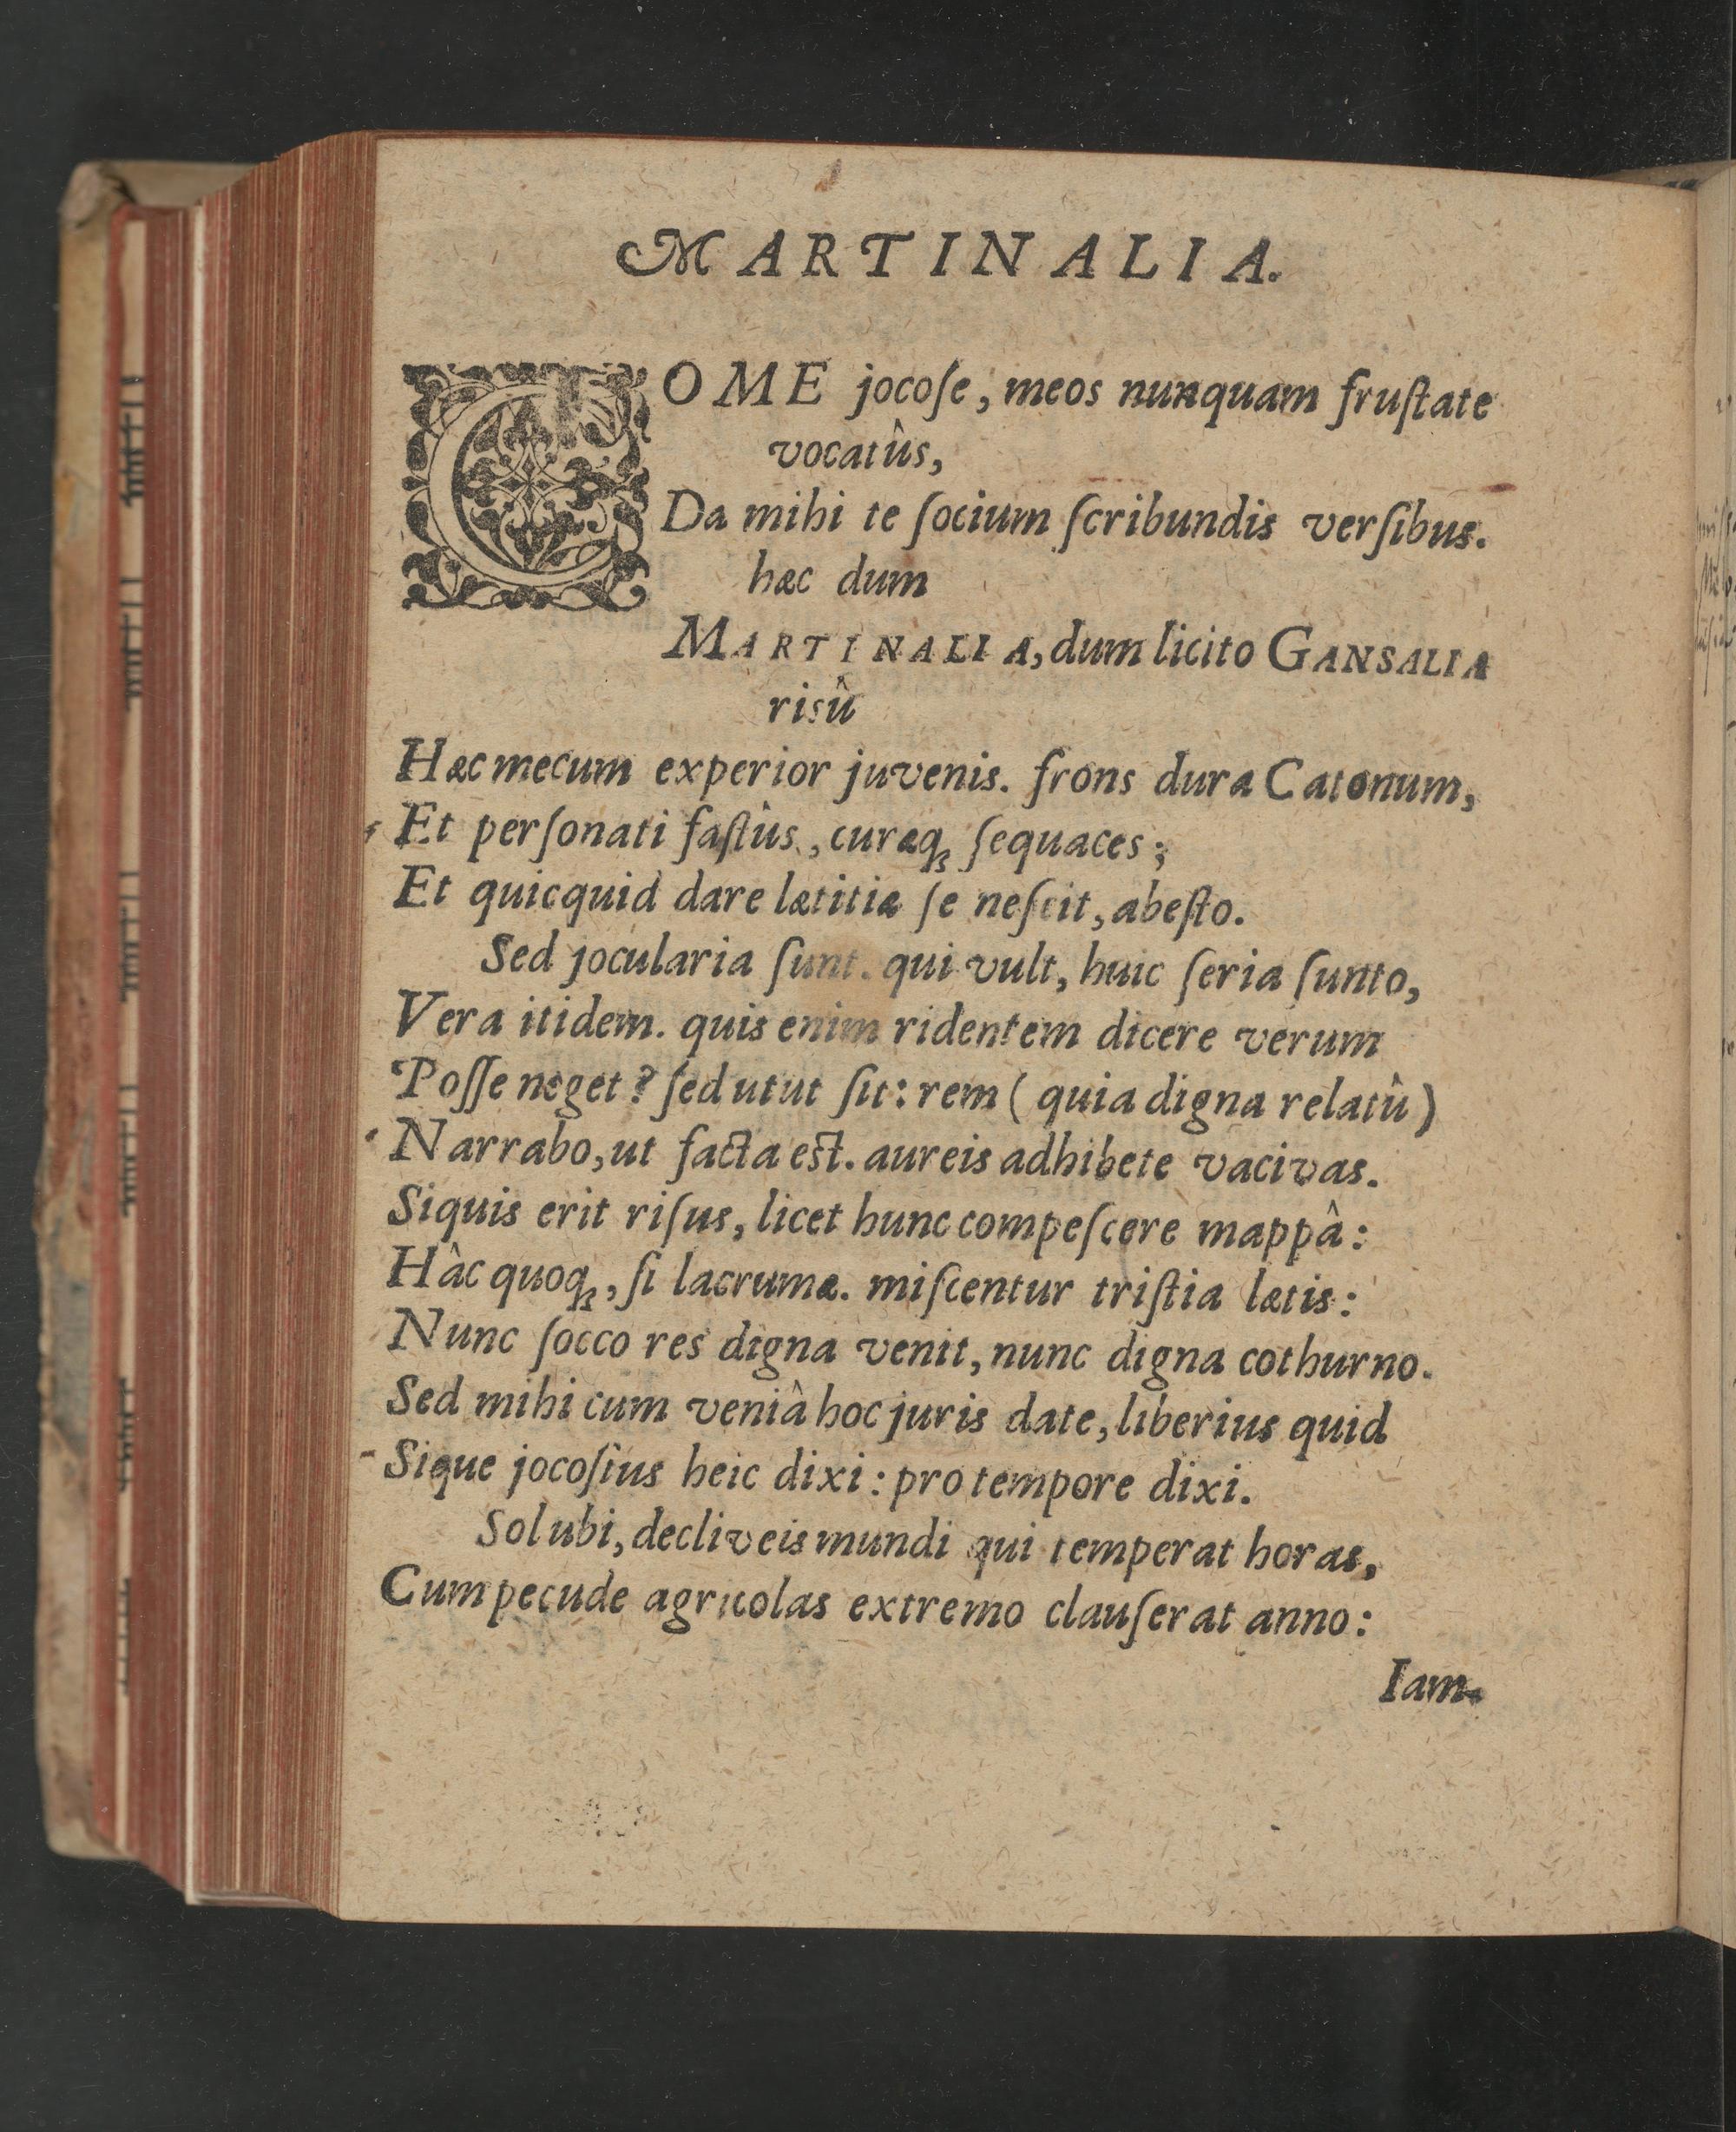 MARTINALIA.
COME jocoſe, meos nunquam fruſtate
vocatûs,
Da mihi te ſocium ſcribundis verſibus.
hæc dum
MARTINALIA, dum licito GANSALIA
risû
Hæc mecum experior juvenis. frons dura Catonum,
Et perſonati faſtûs, curæq; ſequaces;
Et quicquid dare lætitiæ ſe neſcit, abeſto.
Sed jocularia ſunt. qui vult, huic ſeria ſunto,
Vera itidem. quis enim ridentem dicere verum
Poſſe neget? ſed utut ſit: rem (quia digna relatû)
Narrabo, ut facta est. aureis adhibete vacivas.
Siquis erit riſus, licet hunc compeſcere mappâ:
Hâc quoq;, ſi lacrumæ. miſcentur triſtia lætis:
Nunc ſocco res digna venit, nunc digna cothurno.
Sed mihi cum veniâ hoc juris date, liberius quid
Sique jocoſius heic dixi: pro tempore dixi.
Sol ubi, decliveis mundi qui temperat horas,
Cum pecude agricolas extremo clauſerat anno:
Iam